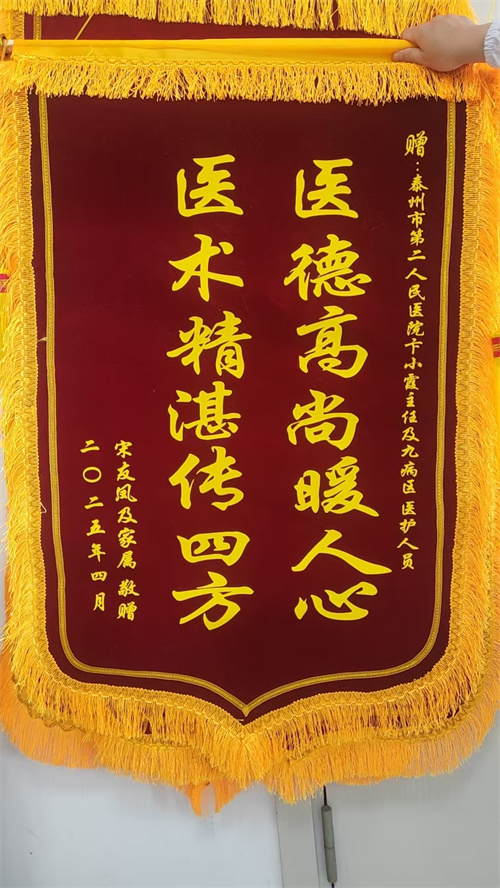 赠:泰州市第二人民医院卞小霞主任及九病区医护人员
医德高尚暖人心
医术精湛传四方
宋友凤及家属 敬赠
二〇二五年四月